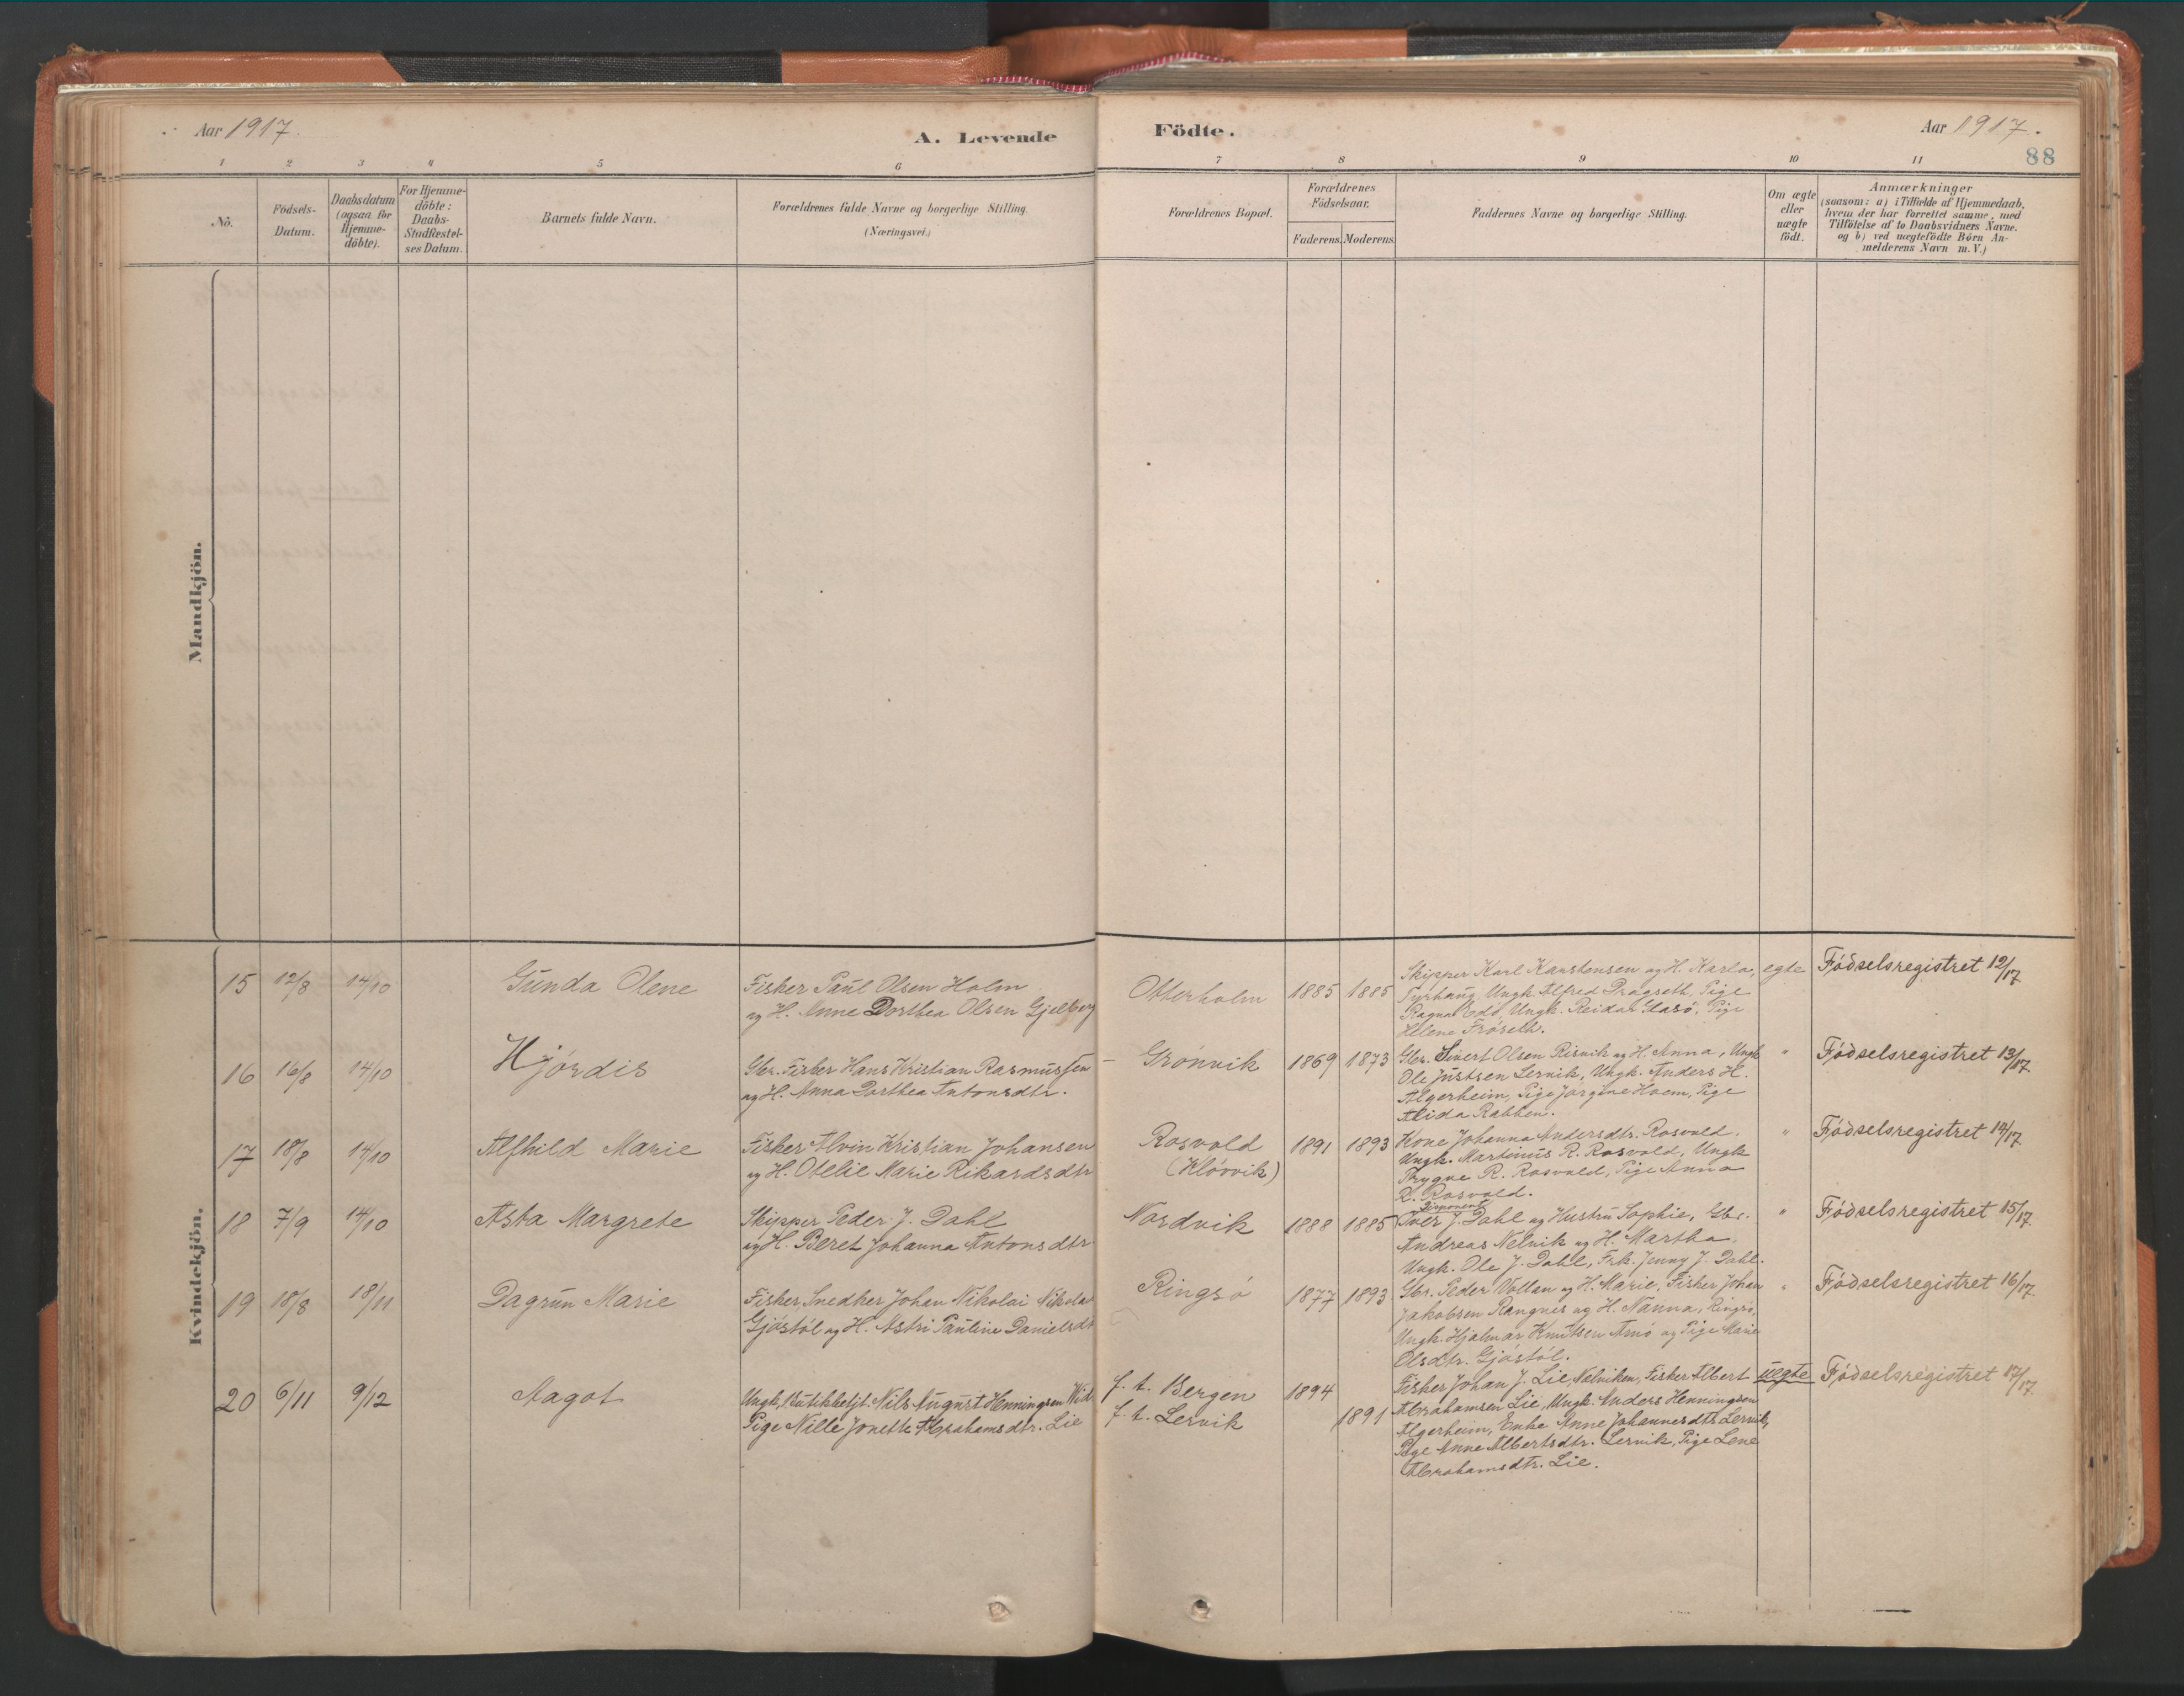 Aar 1917.
A. Levende
Födte.
Aar 1917.
88
1 2 3 4 5 6 7 8 9 10 11
No.
Födsels-
Datum.
Daabsdatum
(ogsaa for
Hjemme-
döbte).
For Hjemme-
döbte:
Daabs-
Stadfæstel-
ses Datum.
Barnets fulde Navn.
Forældrenes fulde Navne og borgerlige Stilling.
(Næringsvei.)
Forældrenes Bopæl.
Forældrenes
Födselsaar.
Faderens. Moderens.
Faddernes Navne og borgerlige Stilling.
Om ægte
eller
uægte
födt.
Anmærkninger
(saasom: a) i Tilfælde af Hjemmedaab,
hvem der har forrettet samme, med
Tilföielse af to Daabsvidners Navne,
og b) ved uægtefödte Börn An-
melderens Navn m. V.)
Mandkjön.
Kvindekjön.
15 12/8 14/10 Gunda Olene
Fisker Paul Olsen Holm
og H. Anne Dorthea Olsen Gjelberg
Otterholm 1885 1885
Skipper Karl Karstensen og H. Karla,
Tyrhaug, Ungk. Alfred Dragseth, Pige
Ragna Edö, Ungk. Reidar Glasö, Pige
Helene Fröseth.
egte Födselsregistret 12/17
16 16/8 14/10 Hjördis
Gbr. Fisker Hans Kristian Rasmussen
og H. Anna Dorthea Antonsdtr.
Grönvik 1869 1873
Gbr. Sivert Olsen Risvik og H. Anna, Ungk
Ole Justsen Lervik, Ungk. Anders H.
Algerheim, Pige Jörgine Hoem, Pige
Alida Rabben.
" Födselsregistret 13/17
17 18/8 14/10 Alfhild Marie
Fisker Alvin Kristian Johansen
og H. Otelie Marie Rikardsdtr
Rosvold
(Klövvik)
1891 1893
Kone Johanna Andersdtr. Rosvold.
Ungk. Martinus R. Rosvold, Ungk
Trygve R. Rosvold, Pige Anna
R. Rosvold.
" Födselsregistret 14/17
18 7/9 14/10 Asta Margrete
Skipper Peder J. Dahl
og H. Beret Johanna Antonsdtr.
Nordvik 1888 1885
Iver J. Dahl og Hustru Sophie, Gbr.
Andreas Nelvik og H. Martha
Ungk. Ole J. Dahl, Frk. Jenny J. Dahl.
" Födselsregistret 15/17
19 18/8 18/11 Dagrun Marie
Fisker, Snedker Johan Nikolai Nikolai
Gjöstöl og H. Astri Pauline Danielsdt
Ringsö 1877 1893
Gbr. Peder Vollan og H. Marie, Fisker Johan
Jakobsen Rangnes og H. Nanna, Ringsö,
Ungk. Hjalmar Knutsen Amö og Pige Marie
Olsdtr. Gjöstöl.
" Födselsregistret 16/17
20 6/11 9/12 Aagot
Ungk. Butikbetjt. Nils August Henningsen
Pige Nille Jonette Abrahamsdtr. Lie
f. t. Bergen 1894
f. t. Lervik 1891
Fisker Johan J. Lie, Nelviken, Fisker Albert
Abrahamsen Lie, Ungk. Anders Henningsen
Algerheim, Enke Anne Johannesdtr. Lervik,
Pige Anne Albertsdtr. Lervik, Pige Lene
Abrahamsdtr. Lie.
uegte Födselsregistret 17/17